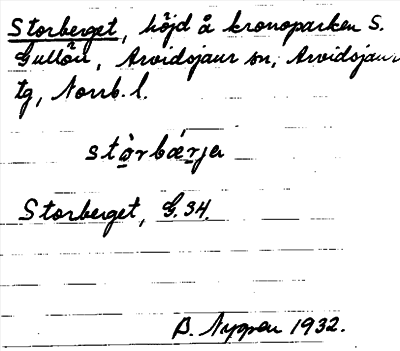 Storberget, höjd å kronoparken S.
Gullön, Arvidsjaur sn, Arvidsjaur
tg, Norrb. l.
stòrbærje
Storberget, G.34.
B. Nygren 1932.